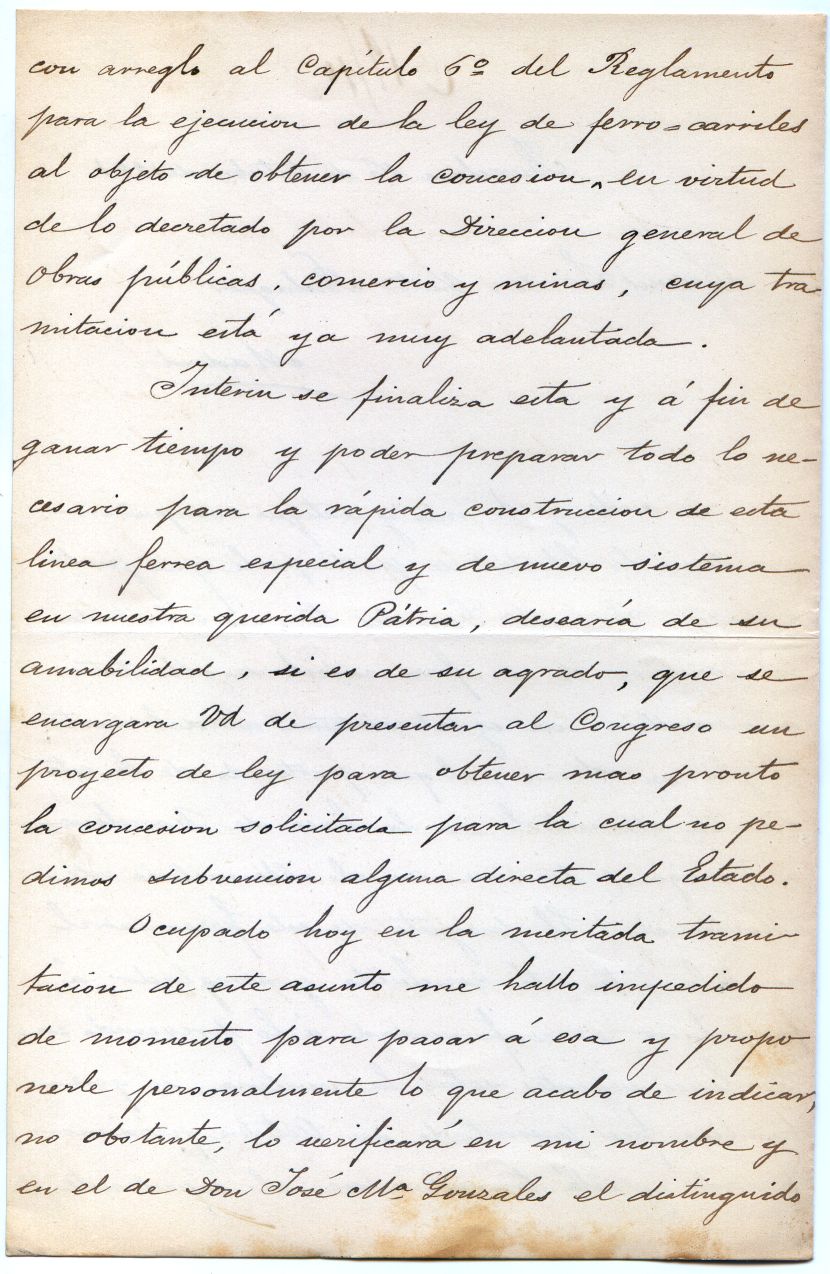 con arreglo al Capítulo 6º del Reglamento
para la ejecucion de la ley de ferro=carriles
al objeto de obtener la concesion, en virtud
de lo decretado por la Direccion general de
Obras públicas, comercio y minas, cuya tra-
mitacion está ya muy adelantada.
Interin se finaliza esta y á fin de
ganar tiempo y poder preparar todo lo ne-
cesario para la rápida construccion de esta
linea ferrea especial y de nuevo sistema
en nuestra querida Pátria, desearía de su
amabilidad, si es de su agrado, que se
encargara Vd de presentar al Congreso un
proyecto de ley para obtener mas pronto
la concesion solicitada para la cual no pe-
dimos subvencion alguna directa del Estado.
Ocupado hoy en la meritada trami-
tación de este asunto me hallo impedido
de momento para pasar á esa y propo
nerle personalmente lo que acabo de indicar,
no obstante, lo verificará en mi nombre y
en el de Don José Mª Gonzales el distinguido